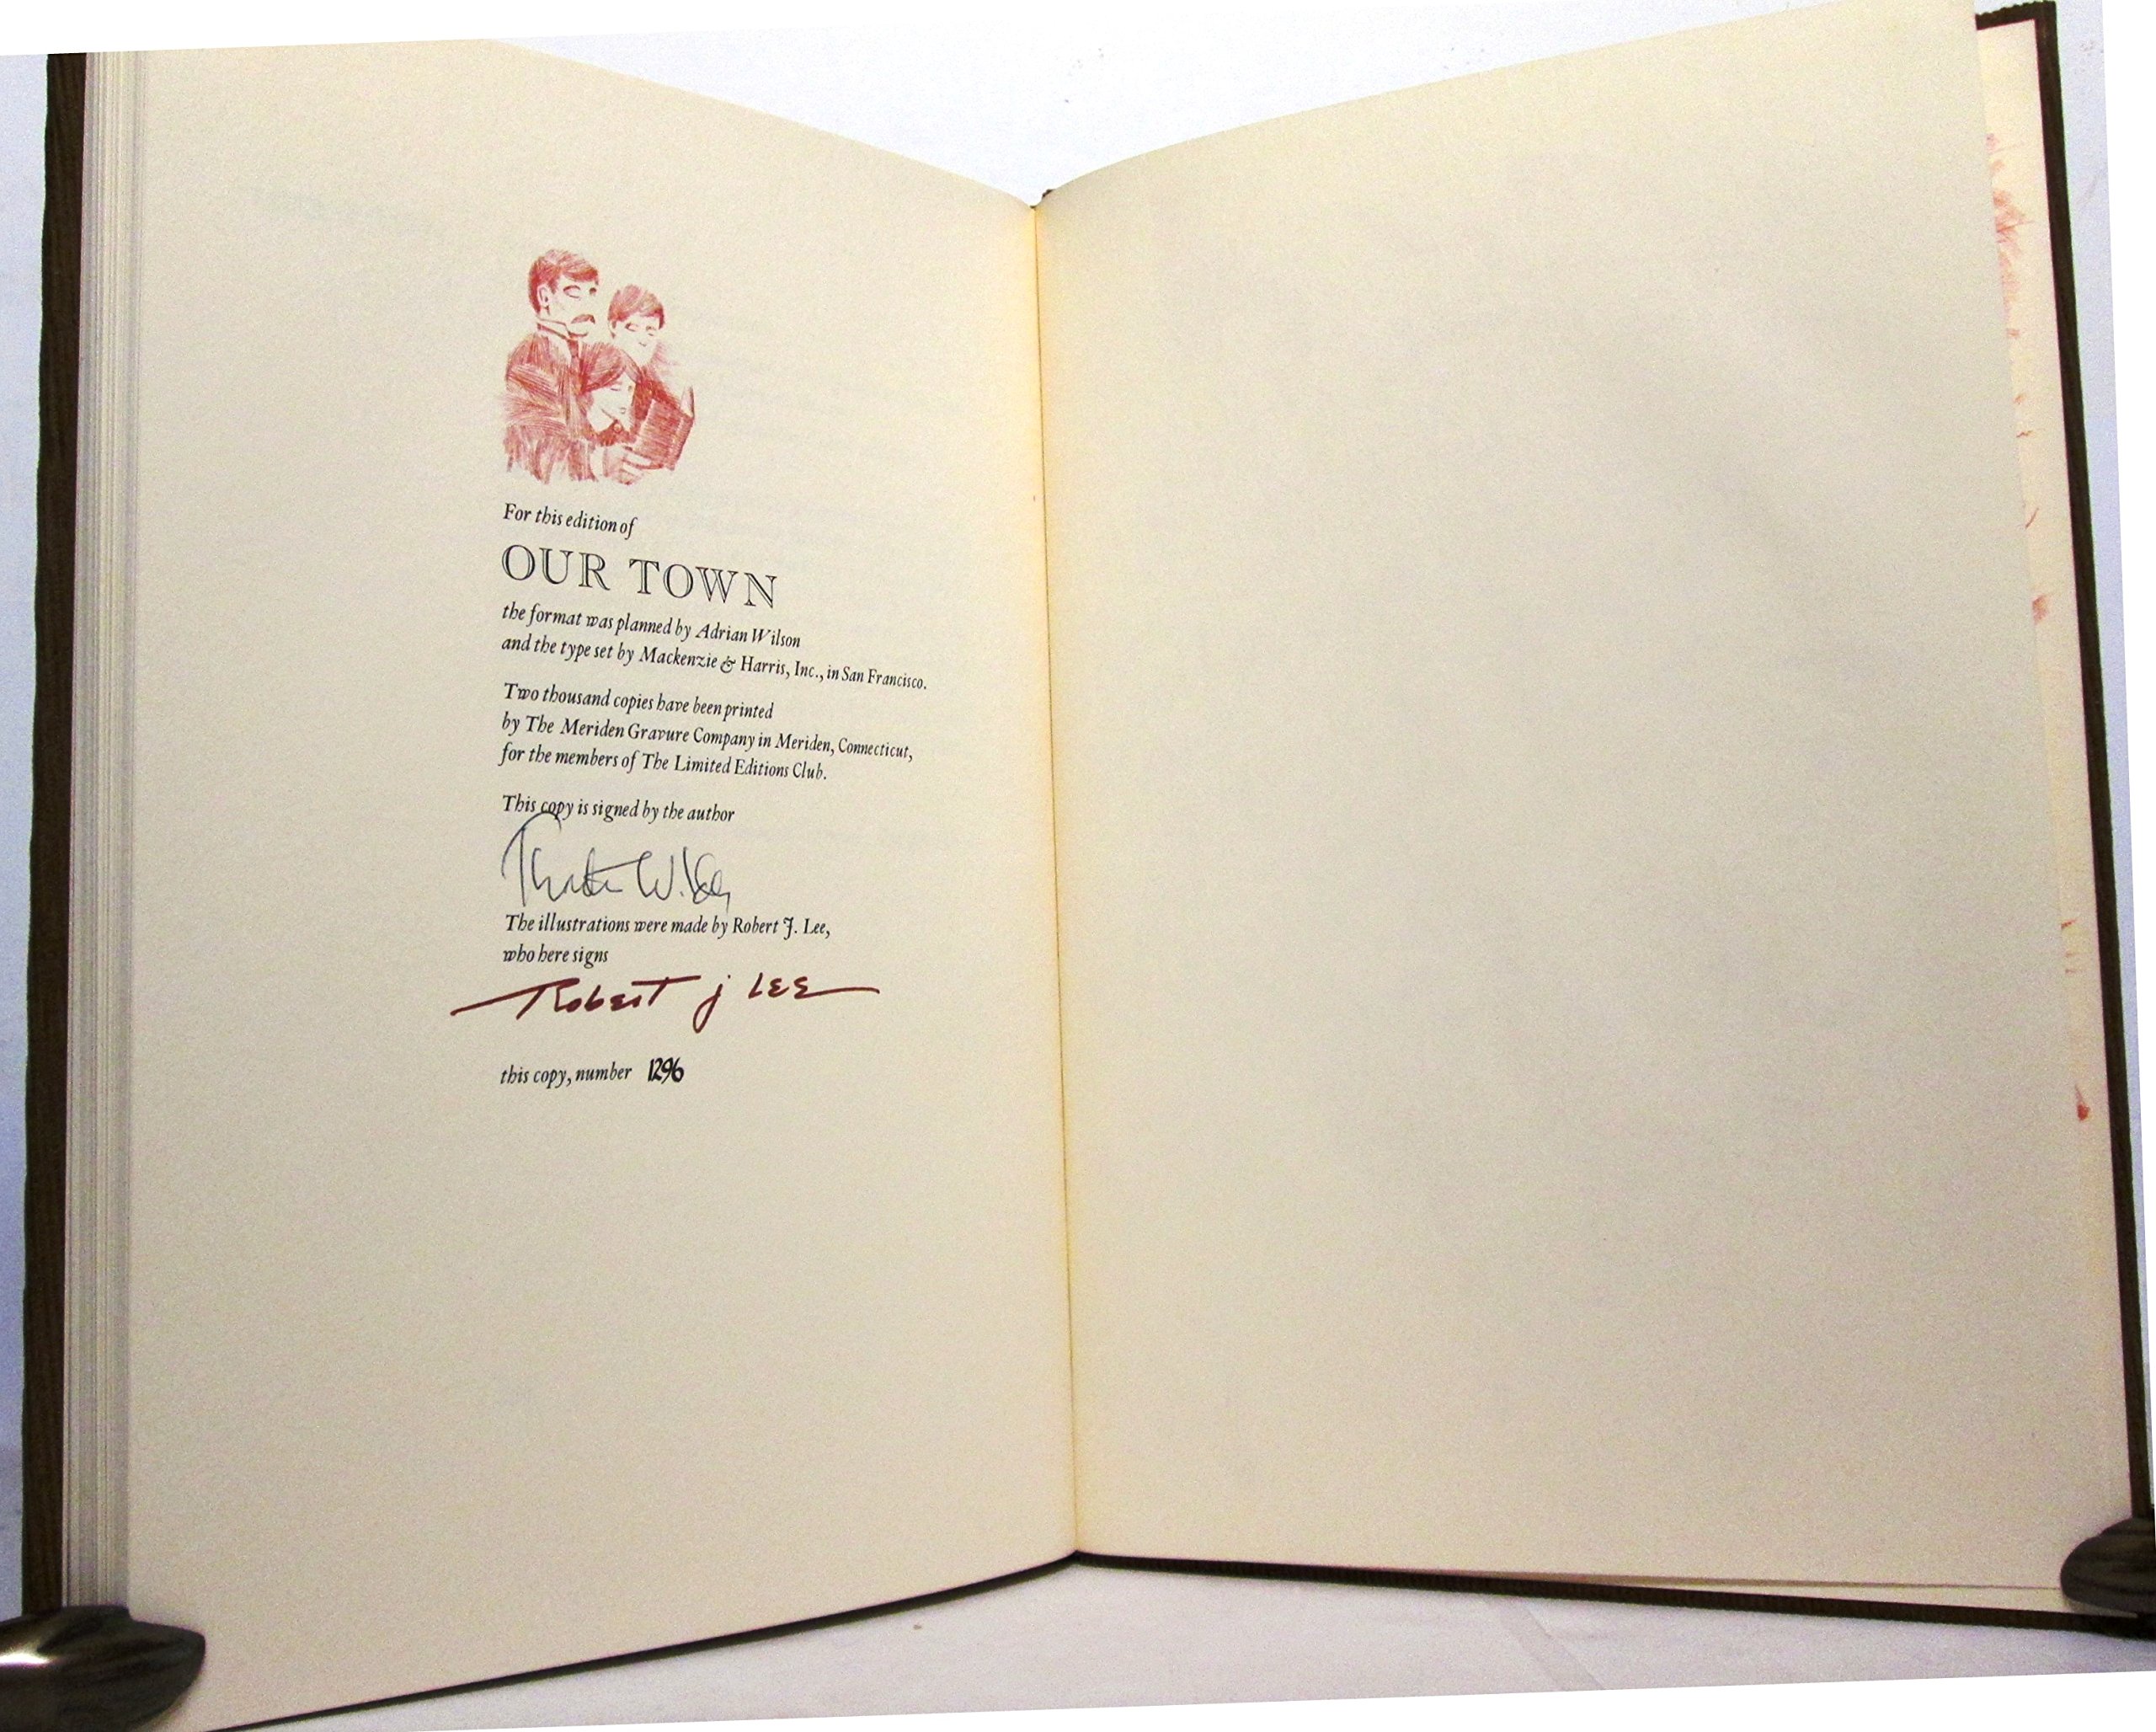 For this edition of
OUR TOWN
the format was planned by Adrian Wilson
and the type set by Mackenzie & Harris, Inc., in San Francisco.
Two thousand copies have been printed
by The Meriden Gravure Company in Meriden, Connecticut,
for the members of The Limited Editions Club.
This copy is signed by the author
Thornton Wilder
The illustrations were made by Robert J. Lee,
who here signs
Robert j LEE
this copy, number 1296